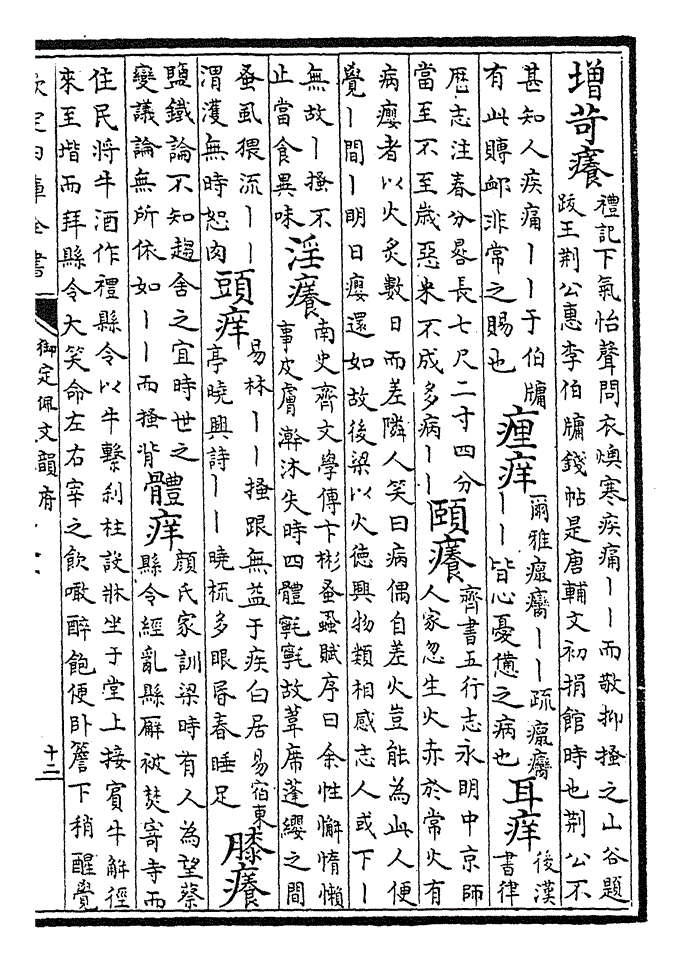 增苛癢禮記下氣怡聲問衣燠寒疾痛丨丨而敬抑搔之山谷題
跋王荆公惠李伯牖錢帖是唐輔文初捐館時也荆公不
甚知人疾痛丨丨于伯牖
有此賻䘏非常之賜也瘽痒爾雅瘟癙丨丨疏瘟癙
丨丨皆心憂憊之病也耳痒後漢
書律
歴志注春分晷長七尺二寸四分
當至不至歲惡米不成多病丨丨頤癢齊書五行志永明中京師
人家忽生火赤於常火有
病癭者以火炙數日而差隣人笑曰病偶自差火豈能為此人便
覺丨間丨明日癭還如故後梁以火徳興物類相感志人或下丨
無故丨搔不
止當食異味淫癢南史齊文學傳卞彬蚤蝨賦序曰余性懈惰懶
事皮膚澣沐失時四體𣯶𣯶故葦席蓬纓之間
蚤虱猥流丨丨
渭濩無時恕肉頭痒易林丨丨搔跟無益于疾白居易宿東
亭曉興詩丨丨曉梳多眼昏春睡足膝癢
鹽鐵論不知趨舍之宜時世之
變議論無所依如丨丨而搔背體痒顔氏家訓梁時有人為望蔡
縣令經亂縣廨被焚寄寺而
住民將牛酒作禮縣令以牛繫刹柱設牀坐于堂上接賓牛解徑
來至堦而拜縣令大笑命左右宰之飲噉醉飽便卧簷下稍醒覺
欽定四庫全書
御定佩文韻府
十二